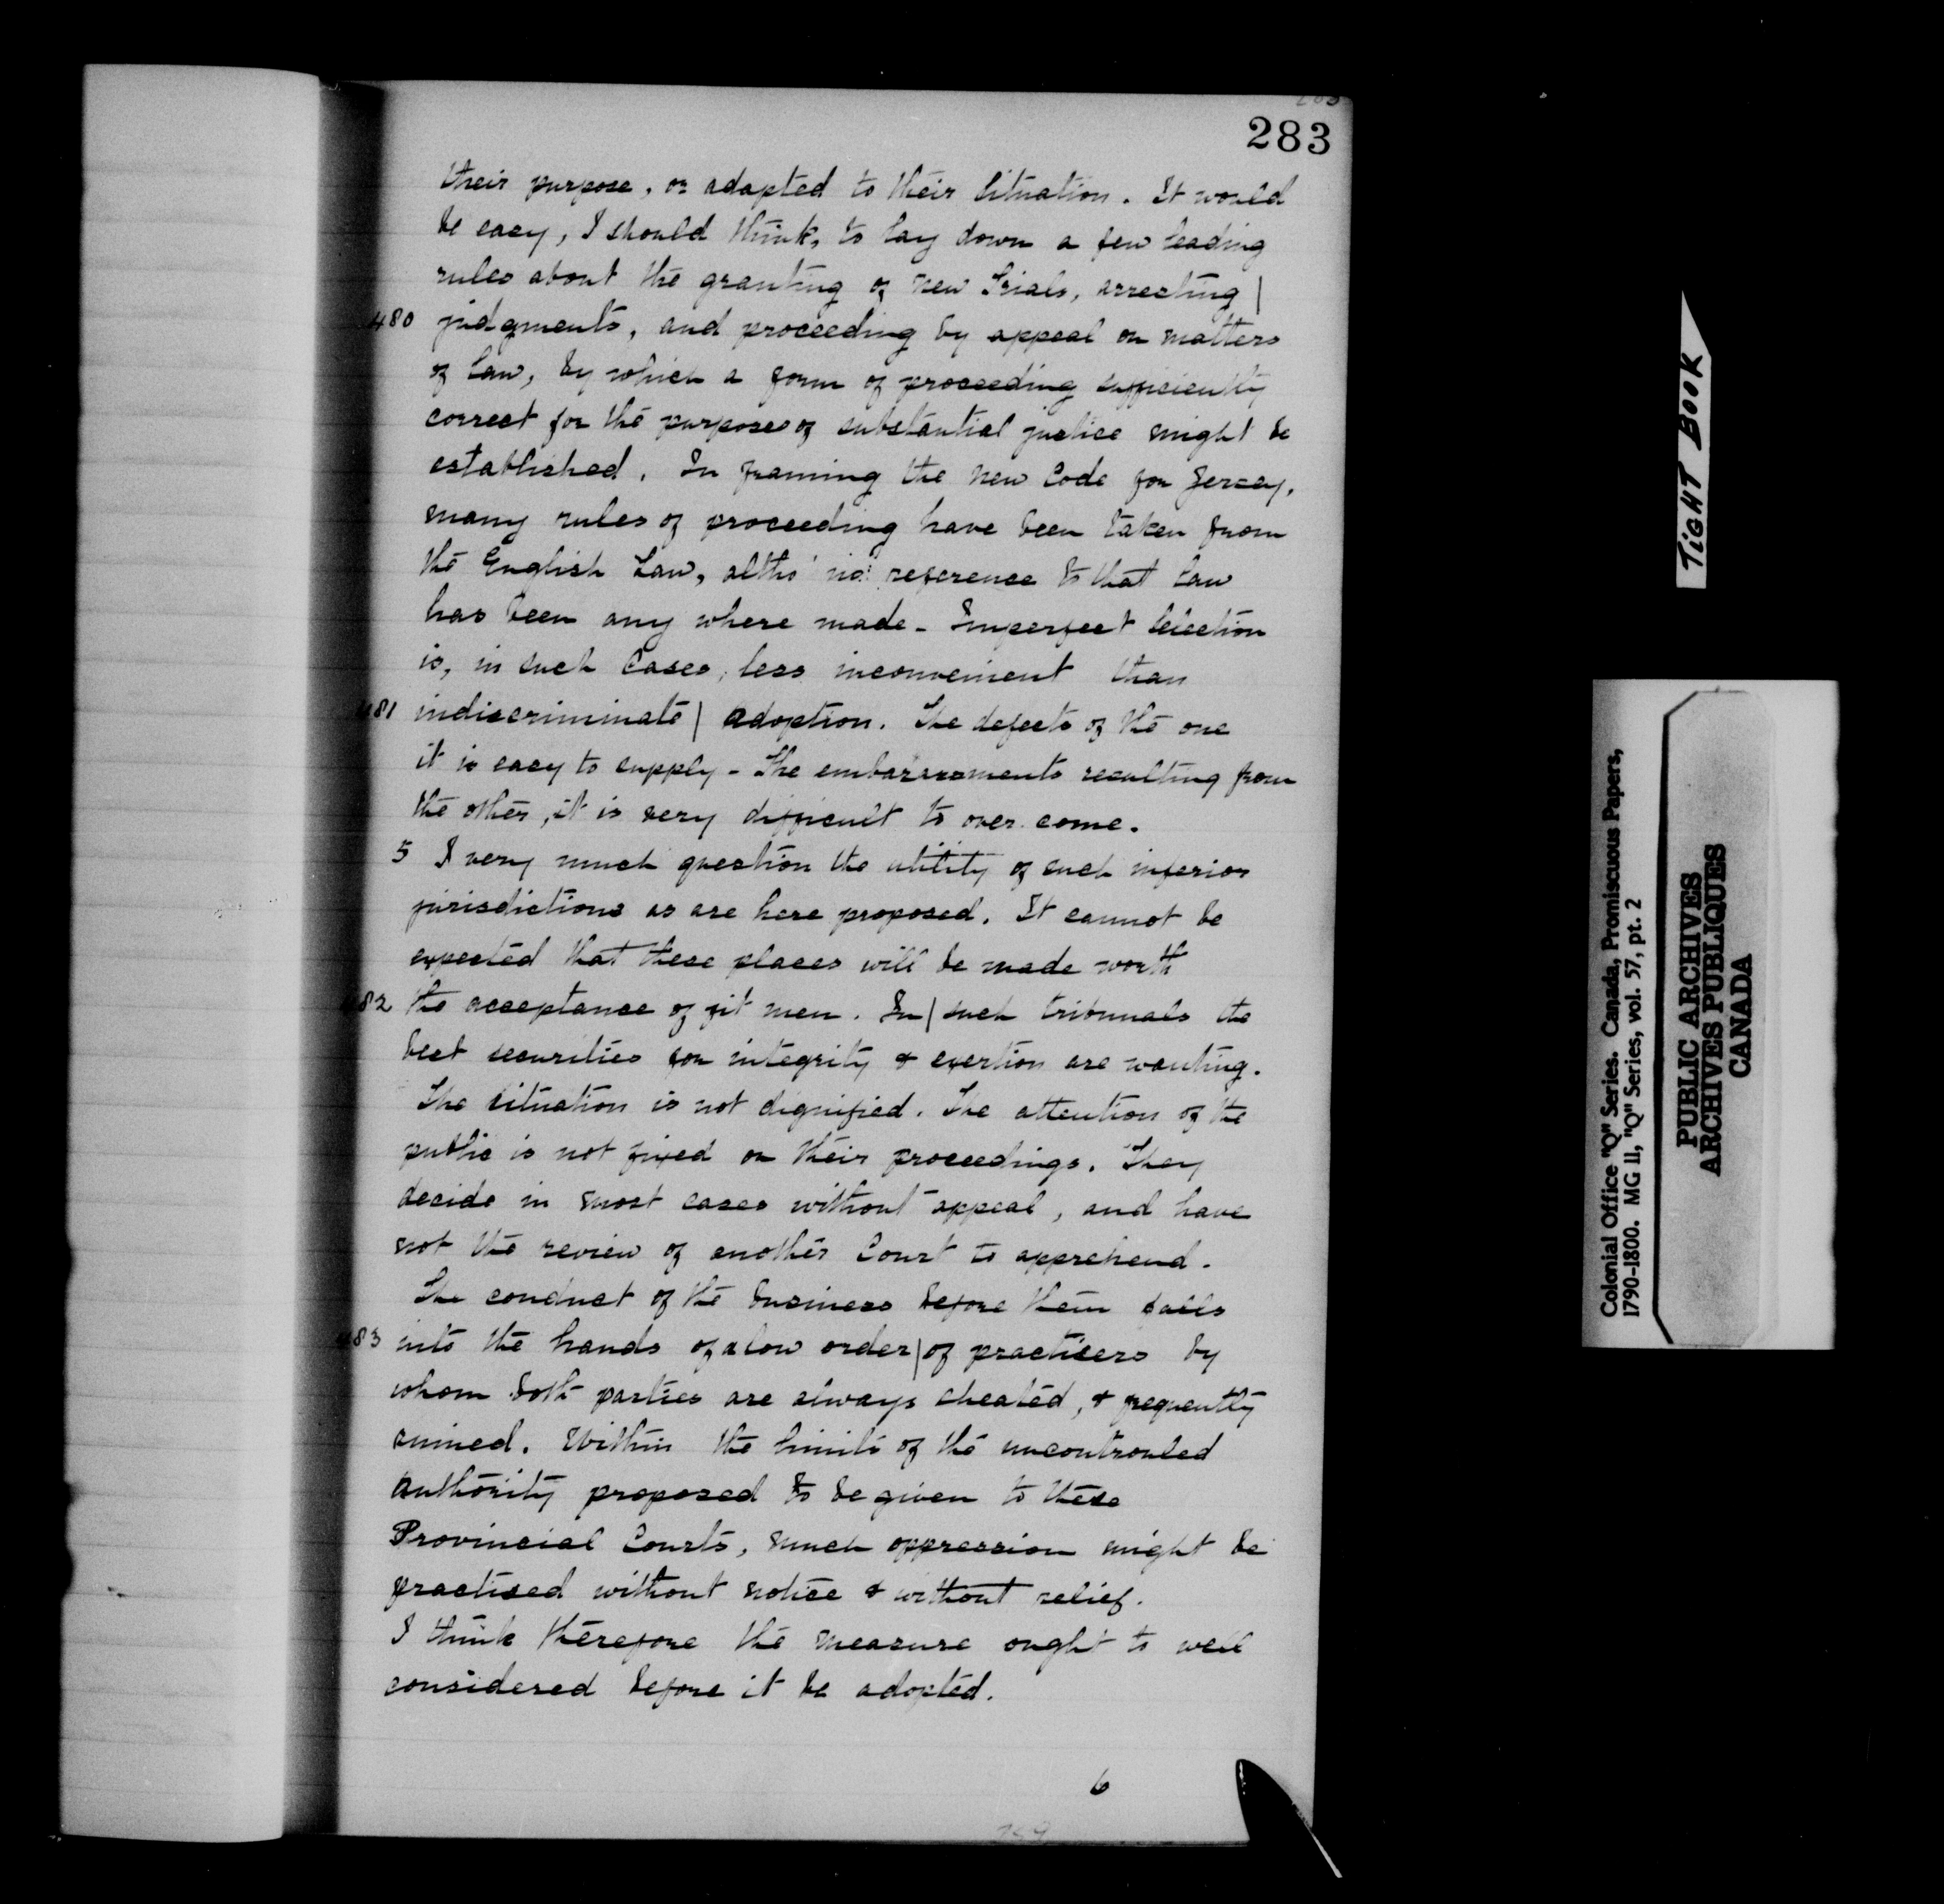 283
their purpose, or adapted to their Situation. It would
be easy, I should think, to lay down a few leading
rules about the granting of new Trials, arresting |
480 judgments, and proceeding by appeal on matters
of law, by which a form of proceeding sufficiently
correct for the purposes of substantial justice might be
established. In framing the new Code for Jersey,
many rules of proceeding have been taken from
the English Law, altho' no reference to that law
has been any where made - Imperfect Selection
is, in such Cases, less inconvenient than
481 indiscriminate | adoption. The defects of the one
it is easy to supply - The embarrassments resulting from
the other, it is very difficult to over come.
5 I very much question the utility of such inferior
jurisdictions as are here proposed. It cannot be
expected that these places will be made worth
482 the acceptance of fit men. In | such tribunals the
best securities for integrity & exertion are wanting.
The situation is not dignified. The attention of the
public is not fixed on their proceedings. They
decide in most cases without appeal, and have
not the review of another Court to apprehend.
The conduct of the business before them falls
483 into the hands of a low order | of practisers by
whom both parties are always cheated, & frequently
ruined. Within the limits of the uncontrouled
authority proposed to be given to these
Provincial Courts, much oppression might be
practised without notice & without relief.
I think therefore the measure ought to well
considered before it be adopted.
6
259
TIGHT BOOK
Colonial Office "Q" Series. Canada, Promiscuous Papers,
1790-1800. MG 11, "Q" Series, vol. 57, pt. 2
PUBLIC ARCHIVES
ARCHIVES PUBLIQUES
CANADA